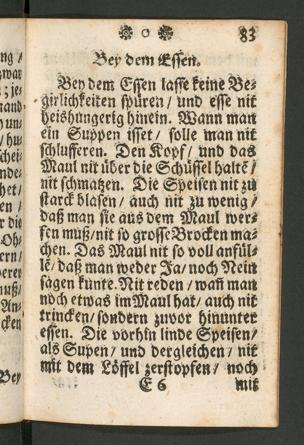 83
Bey dem Essen.
Bey dem Essen lasse keine Be-
girlichkeiten spüren / und esse nit
heishungerig hinein. Wann man
ein Suppen isset / solle man nit
schlufferen. Den Kopf / und das
Maul nit über die Schüssel haltẽ /
nit schmatzen. Die Speisen nit zu
starck blasen / auch nit zu wenig /
daß man sie aus dem Maul wer-
fen muß / nit so grosse Brocken ma-
chen. Das Maul nit so voll anfül-
lẽ / daß man weder Ja / noch Nein
sagen kunte. Nit reden / wañ man
noch etwas im Maul hat / auch nit
trincken / sondern zuvor hinunter
essen. Die vorhin linde Speisen /
als Supen / und dergleichen / nit
mit dem Löffel zerstopfen / noch
E 6
mit